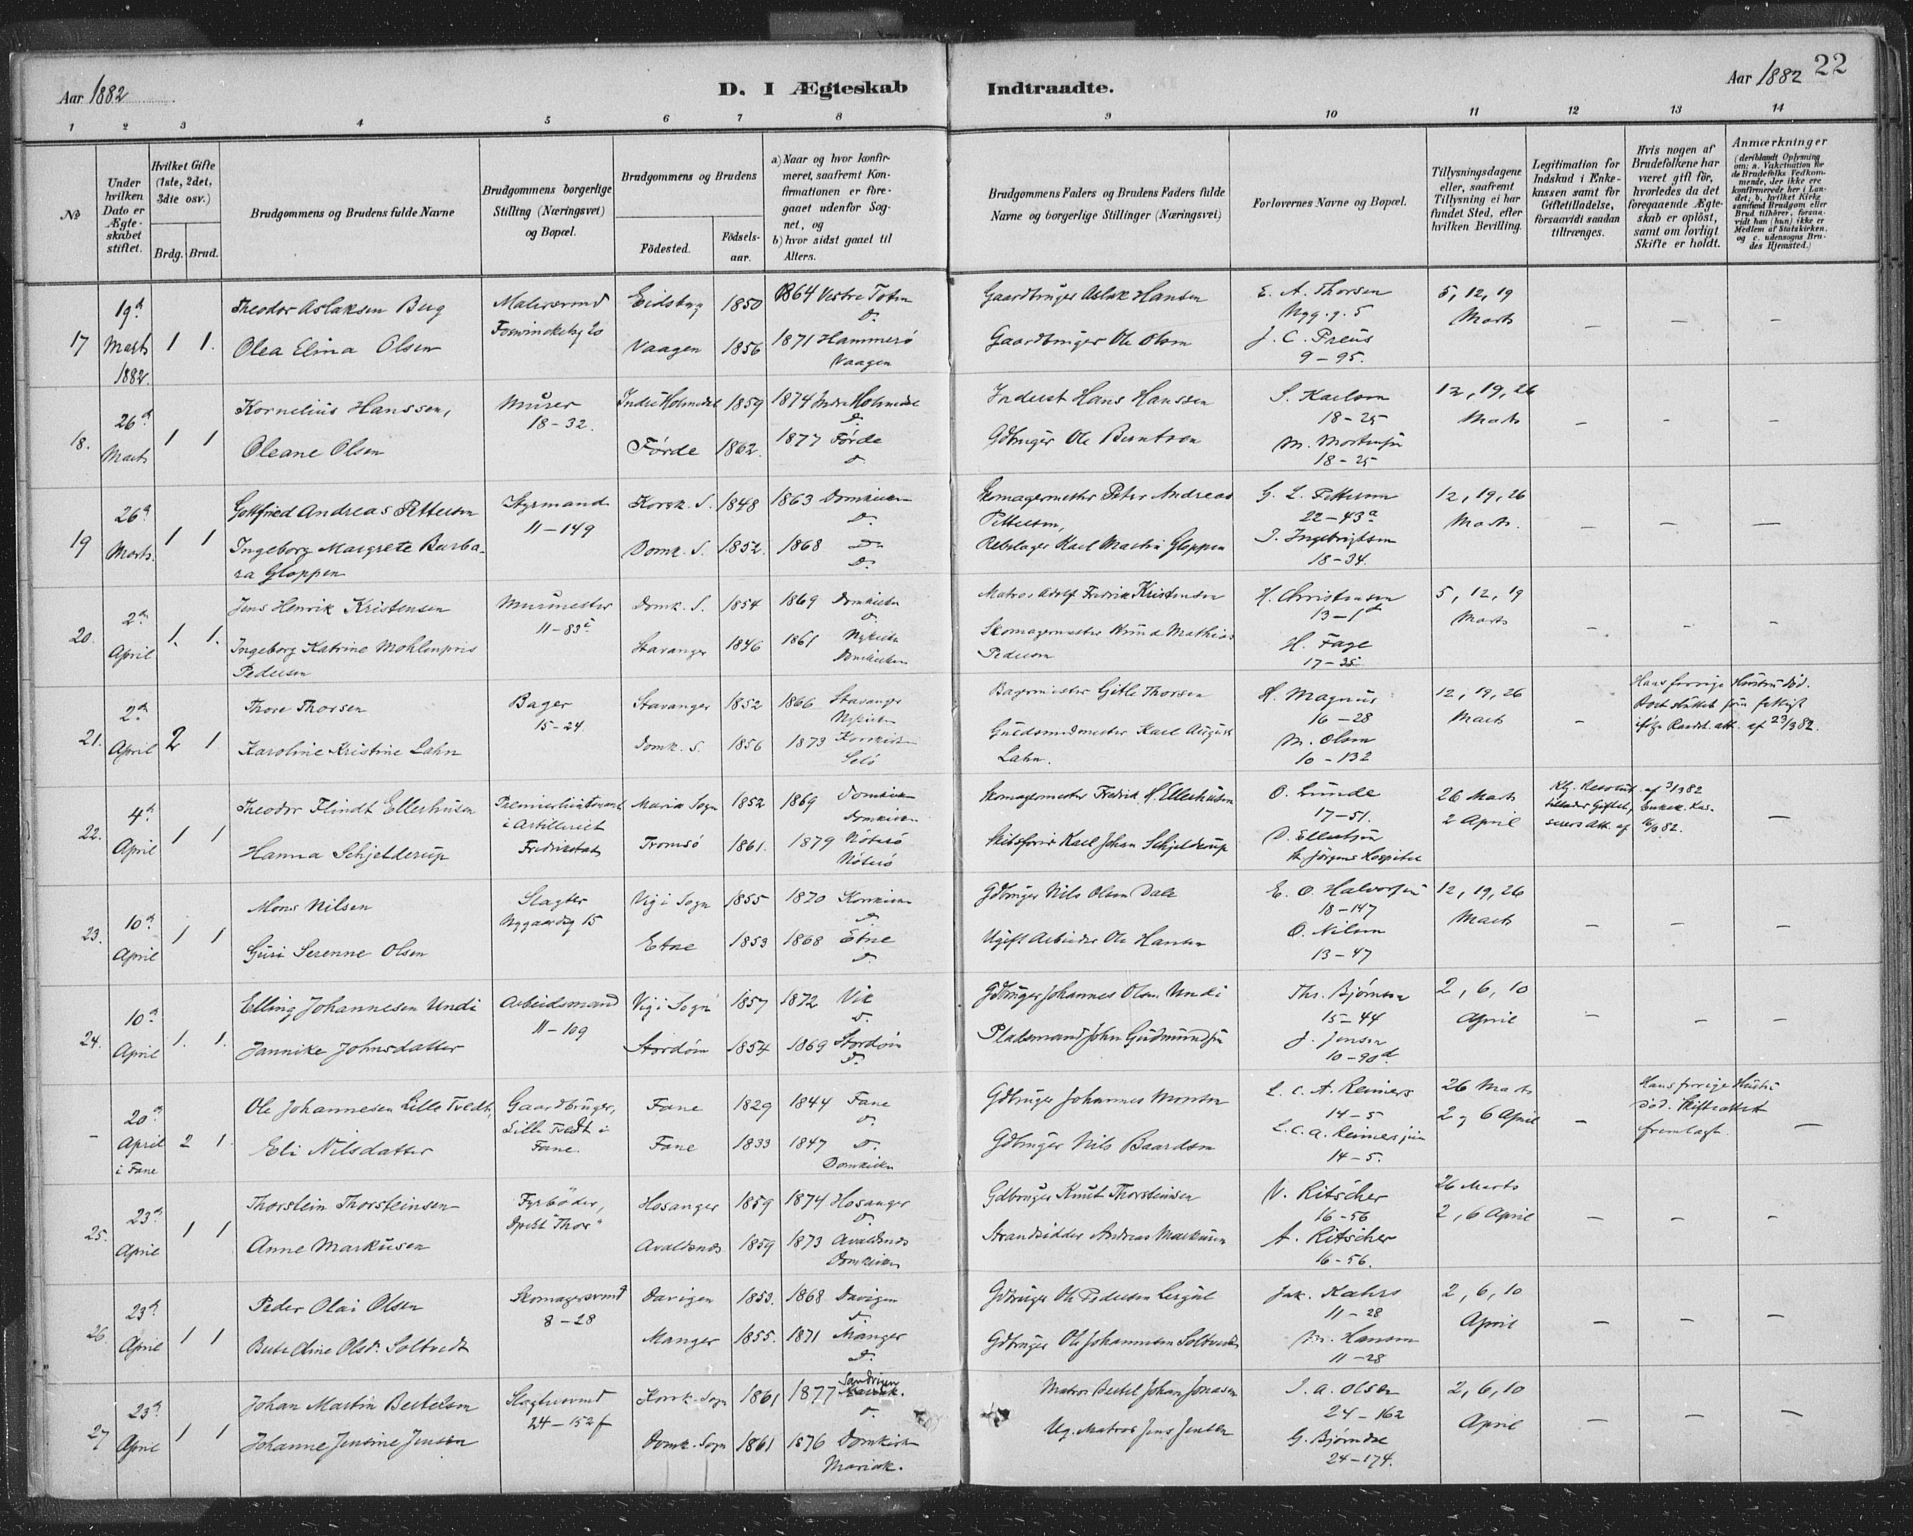 Aar 1882
D. I Ægteskab Indtraadte.
Aar 1882 22
1 2 3 4 5 6 7 8 9 10 11 12 13 14
No
Under hvilken Dato er Ægteskabet stiftet.
Hvilket Gifte (1ste, 2det, 3die osv.)
Brdg. Brud.
Brudgommens og Brudens fulde Navne
Brudgommens borgerlige Stilling (Næringsvei) og Bopæl.
Brudgommens og Brudens
Födested. Födselsaar.
a) Naar og hvor konfirmeret, saafremt Konfirmationen er foregaaet udenfor Sognet, og
b) hvor sidst gaaet til Alters.
Brudgommens Faders og Brudens Faders fulde Navne og borgerlige Stillinger (Næringsvei)
Forlovernes Navne og Bopæl.
Tillysningsdagene eller, saafremt Tillysning ei har fundet Sted, efter hvilken Bevilling.
Legitimation for Indskud i Enkekassen samt for Giftetilladelse, forsaavidt saadan tiltrænges.
Hvis nogen af Brudefolkene har været gift för, hvorledes da det foregaaende Ægteskab er oplöst, samt om lovligt Skifte er holdt.
Anmærkninger
17 19d Marts 1882. 1 1.
Theodor Aslaksen Berg
Eidsberg 1850 1864 Vestre Toten D.
Gaardbruger Aslak Hansen
E. A. Thorsen
5, 12, 19 Marts
Olea Elina Olsen
Vaagen 1856 1871 Hammerö Vaagen
Gaardbruger Ole Olsen
J. C. Preus 9-95.
18. 26d Marts 1 1
Kornelius Hanssen,
Murer 18-32.
Indre Holmedal 1859 1874 Indre Holmedal D.
Inderst Hans Hanssen
S. Karlsen 18-25
12, 19, 26 Marts
Oleane Olsen
Förde 1862. 1877 Förde D.
Gdbruger Ole Berntsen
M. Mortensen 18-25
19 26d Marts. 1 1
Gottfried Andreas Pettersen
Styrmand 11-149
Korsk. S. 1848 1863 Domkirken D.
Skomagermester Peter Andreas Pettersen,
G. L. Pettersen 22-43a
12, 19, 26 Marts.
Ingeborg Margrete Barbara Gloppen
Domk. S. 1852. 1868 D. D.
Rebslager Karl Martin Gloppen
I. Ingebrigtsen 18-34.
20. 2d April 1. 1.
Jens Henrik Kristensen
Murmester 11-83c
Domk. S. 1854 1869 Domkirken D.
Matros Adolf Fredrik Kristensen
H. Christensen 13-1d
5, 12, 19 Marts
Ingeborg Katrine Mohlenpris Pedersen
Stavanger 1846 1861 Nykirken Domkirken
Skomagermester Knud Mathias Pedersen
H. Fage 17-35
21. 2d April 2 1
Thore Thorsen
Bager 15-24
Stavanger 1852 1866 Stavanger Nykirken
Bagermester Gitle Thorsen
H. Magnus 16-28
12, 19, 26 Marts
Hans forrige Hustru död.
af 23/3 82.
Karoline Kristine Lahn
Domk. S. 1856 1873 Korskirken Selö
Guldsmedmester Karl August Lahn.
M. Olsen 10-132
22. 4d April 1 1
Theodor Flindt Ellerhusen
Premierlieutenant i Artilleriet Fredrikstad
Maria Sogn 1852 1869 Domkirken Domkirken
Skomagermester Fredrik H. Ellerhusen
O. Lunde 17-51.
26 Marts 2 April
Kg. Resolut. af 3/1 82
Hanna Schjelderup
Tromsö 1861. 1879 Nöterö Nöterö
Skibsförer Karl Johan Schjelderup
D. Ellertsen St. Jörgens Hospital
23. 10d April 1 1
Mons Nilsen
Slagter Nygaardsg 15
Vig i Sogn 1855 1870 Korskirken D.
Gdbruger Nils Olsen Dale
E. O. Halvorsen 18-147
12, 19, 26 Marts
Guri Serenne Olsen
Etne 1853 1868 Etne D.
Ugift Arbeider Ole Hansen
O. Nilsen 13-47
24. 10d April 1. 1.
Elling Johannesen Undi
Arbeidsmand 11-109
Vig i Sogn 1857 1872 Vik D.
Gdbruger Johannes Olsen Undi
Thr. Björnsen 15-44
2, 6, 10 April
Jannike Johnsdatter
Stordöen 1854 1869 Stordöen D.
Pladsmand John Gudmundsen
J. Jensen 10-90d
- 20d April i Fane 2 1.
Ole Johannesen Lille Tvedt,
Gaardbruger, Lille Tvedt i Fane.
Fane 1829 1844 Fane D.
Gdbruger Johannes Monsen
L. C. A. Reimers 14-5
26 Marts 2 og 6 April
Hans forrige Hustru död. Skifteattest fremlagt
Eli Nilsdatter
Fane 1833 1847 D. Domkirken
Gdbruger Nils Baardsen
L. C. A. Reimers jun 14-5.
25. 23d April 1 1
Thorstein Thorsteinsen
Fyrböder, Dpskt "Thor"
Hosanger 1859 1874 Hosanger D.
Gdbruger Knut Thorsteinsen
V. Ritscher 16-56
26 Marts 2, 6 April
Anne Markusen
Avaldsnes 1859 1873 Avaldsnes Domkirken
Strandsidder Andreas Markusen
A. Ritscher 16-56.
26 23d April 1 1
Peder Olai Olsen
Skomagersvend 8-28
Davigen 1853. 1868 Davigen D.
Gdbruger Ole Pedersen
Jak. Kahrs 11-28
2, 6, 10 April
Berte Oline Olsdr. Soltvedt
Manger 1855. 1871 Manger D.
Gdbruger Ole Johannesen Soltvedt
M. Hansen 11-28
27 23d April 1 1
Johan Martin Bertelsen
Slagtersvend 24-152f
Korsk. Sogn 1861 1877 Sandviken D.
Matros Bertel Johan Jonasen
J. A. Olsen 24-162
2, 6, 10 April
Johanne Jensine Jensen
Domk. Sogn 1861 1876 Domkirken Mariak.
Ug. Matros Jens Jensen
G. Björndal 24-174.